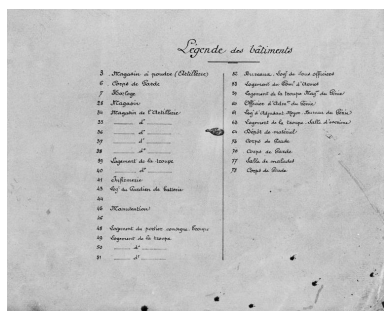 Légende des bâtiments
3 Magasin à poudre (Artillerie)
6 Corps de Garde
7 Horloge
28 Magasin
34 Magasin de l'Artillerie
35 d°
36 d°
37 d°
38 d°
39 Logement de la troupe
40 d°
41 Infirmerie
43 Log.t du Gardien de batterie
44
45 Manutention
46
48 Logement du portier consigne
49 Logement de la troupe
50 d°
51 d°
52 Bureaux. Log.t de Sous officiers
Logement du
Logement de la troupe du Génie
60 Officier d'Adm.on du Génie
61 Log.t d'Adjudant Bureau du Génie
62 Logement de la troupe. Salle d'escrime
Dépôt de matériel
Corps de Garde
76 Corps de Garde
77 Salle de malades
Corps de Garde